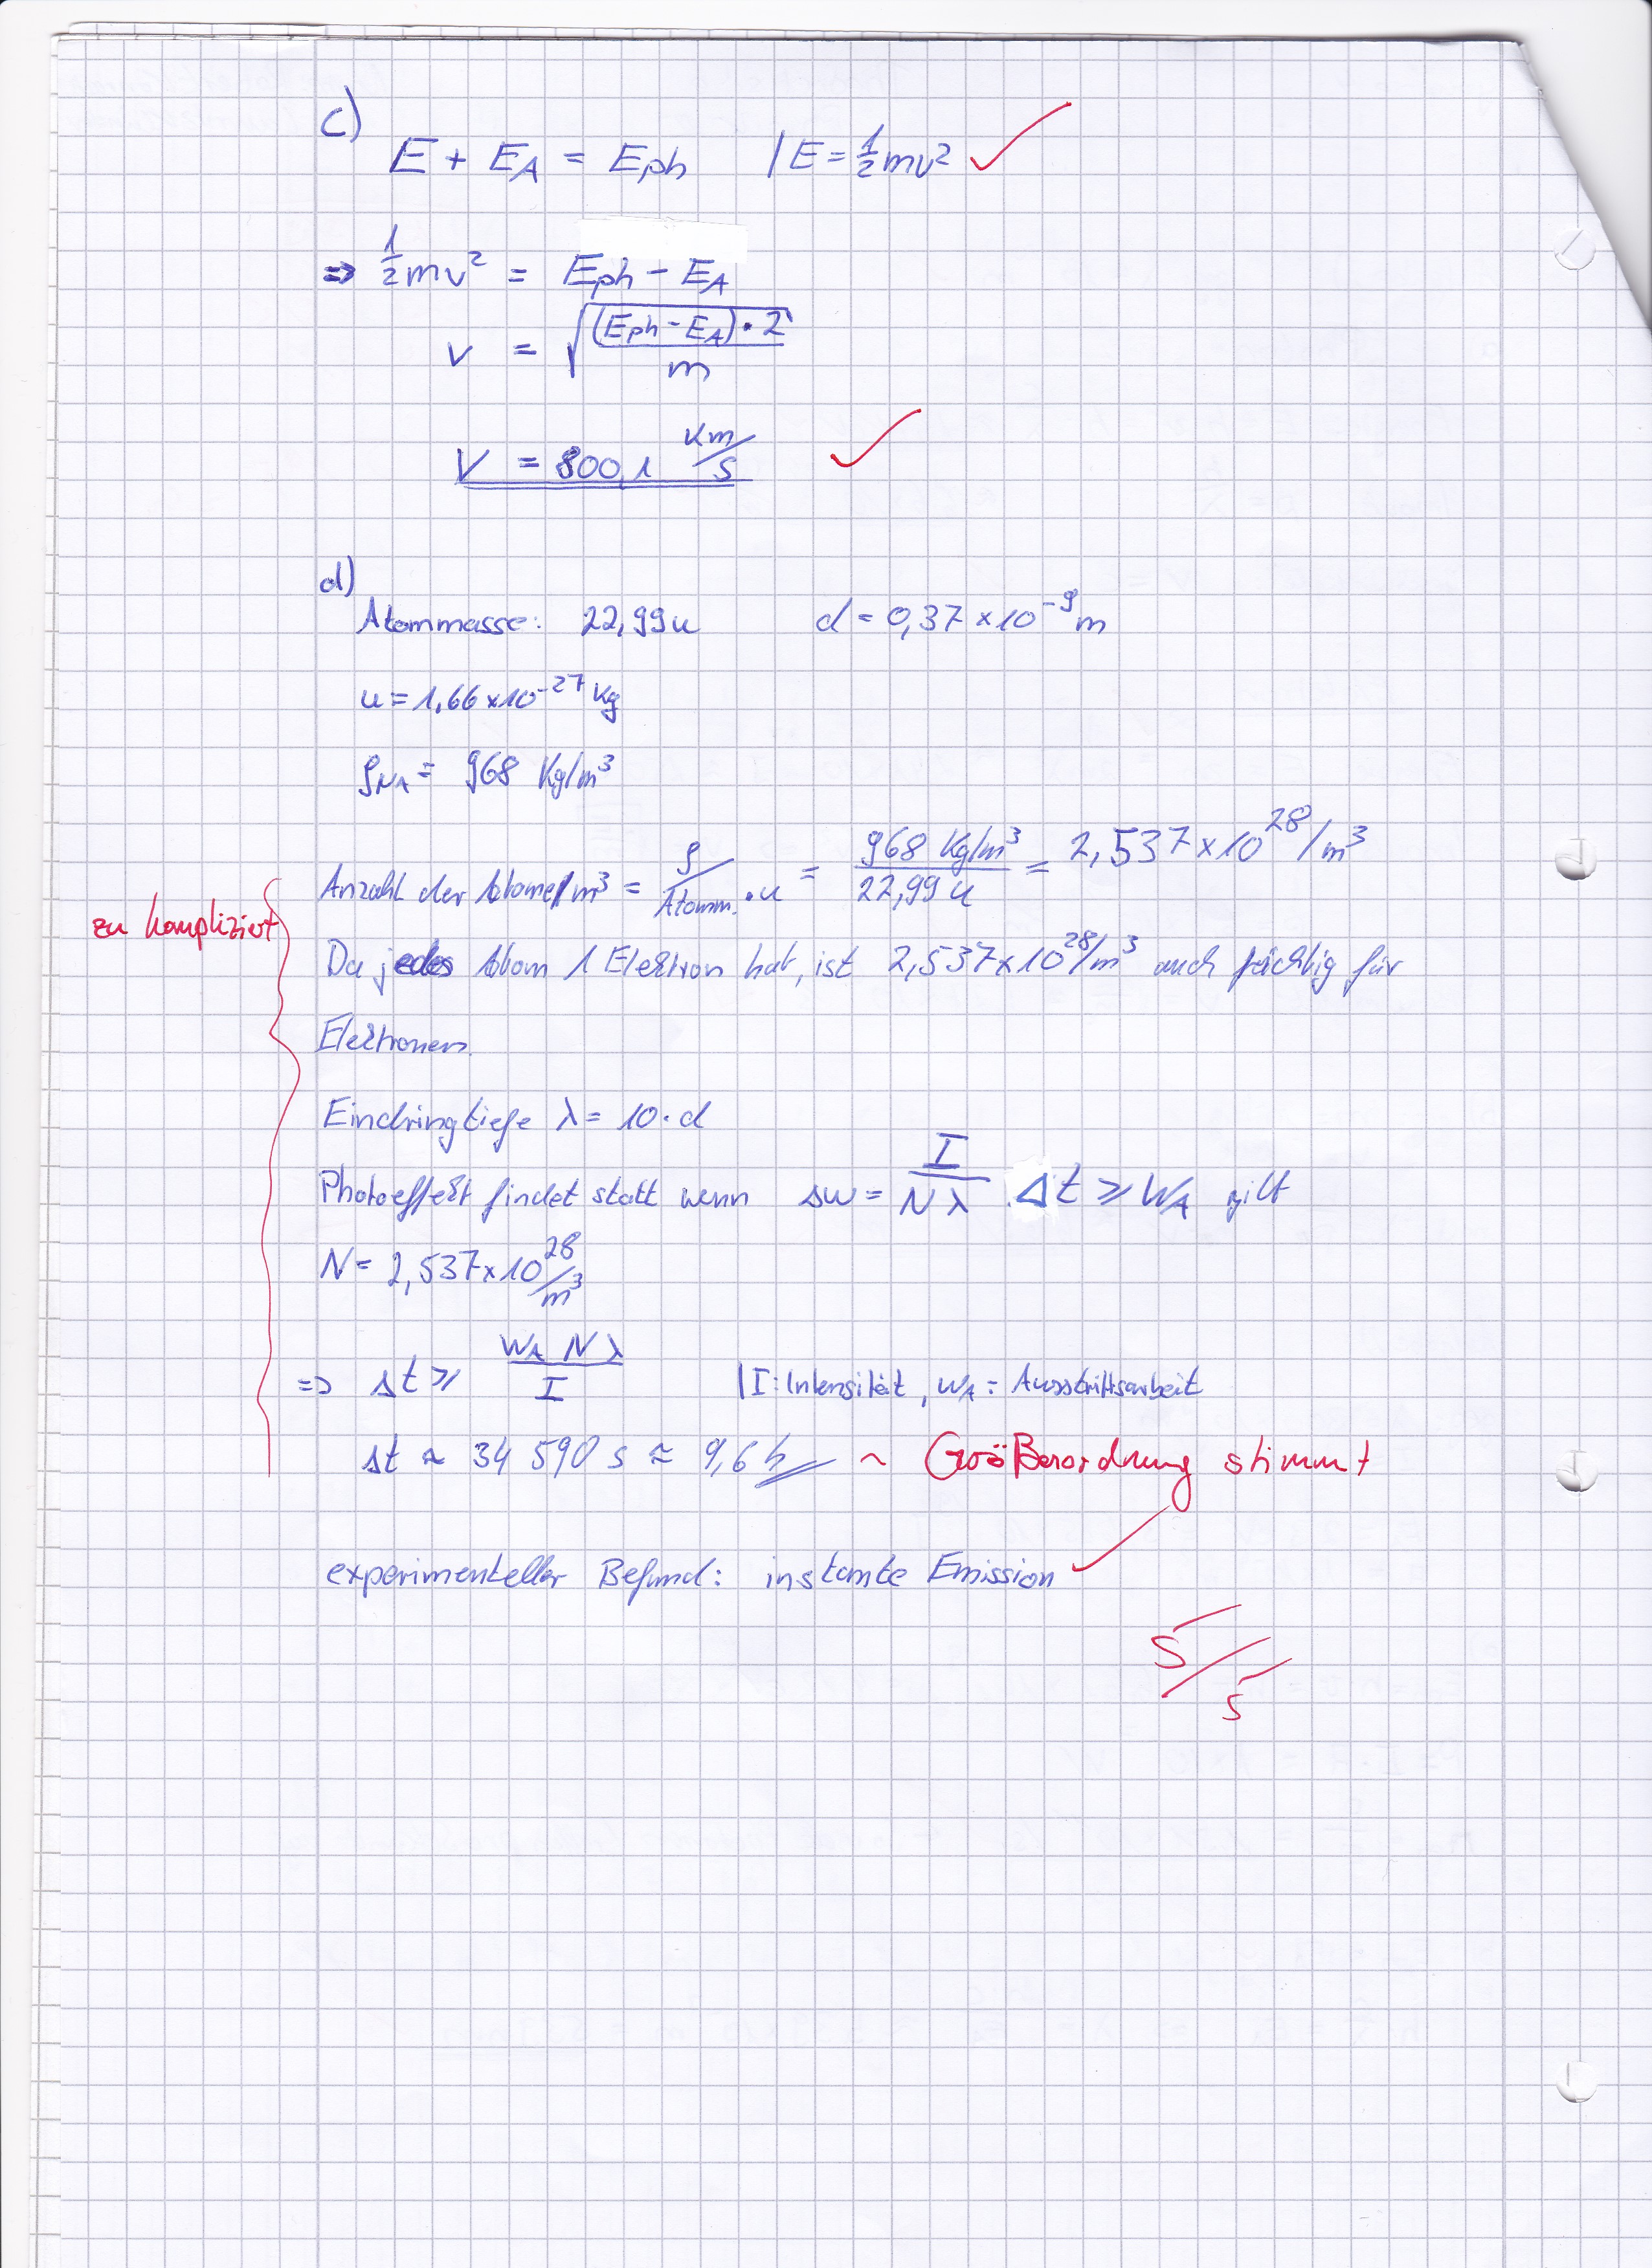 c)
E + E_A = Eph | E = 1/2 mv²
⇒ 1/2 mv² = Eph − E_A
v = √((Eph − E_A) · 2 / m)
V = 800,1 Km/s
d)
Atommasse: 22,99u d = 0,37 × 10⁻⁹ m
u = 1,66 × 10⁻²⁷ Kg
ρ_NA = 968 Kg/m³
Anzahl der Atome/m³ = ρ / Atomm. · u = 968 Kg/m³ / 22,99 u = 2,537 × 10²⁸/m³
zu kompliziert
Da jedes Atom 1 Elektron hat, ist 2,537 × 10²⁸/m³ auch für
Elektronen.
Eindringtiefe λ = 10 · d
Photoeffekt findet statt wenn ΔW = I / N λ · Δt ≥ W_A gilt
N = 2,537 × 10²⁸/m³
⇒ Δt ≥ W_A N λ / I | I: Intensität, W_A = Austrittsarbeit
Δt ≈ 34 590 s ≈ 9,6 h ~ Größenordnung stimmt
experimenteller Befund: instante Emission
5/5